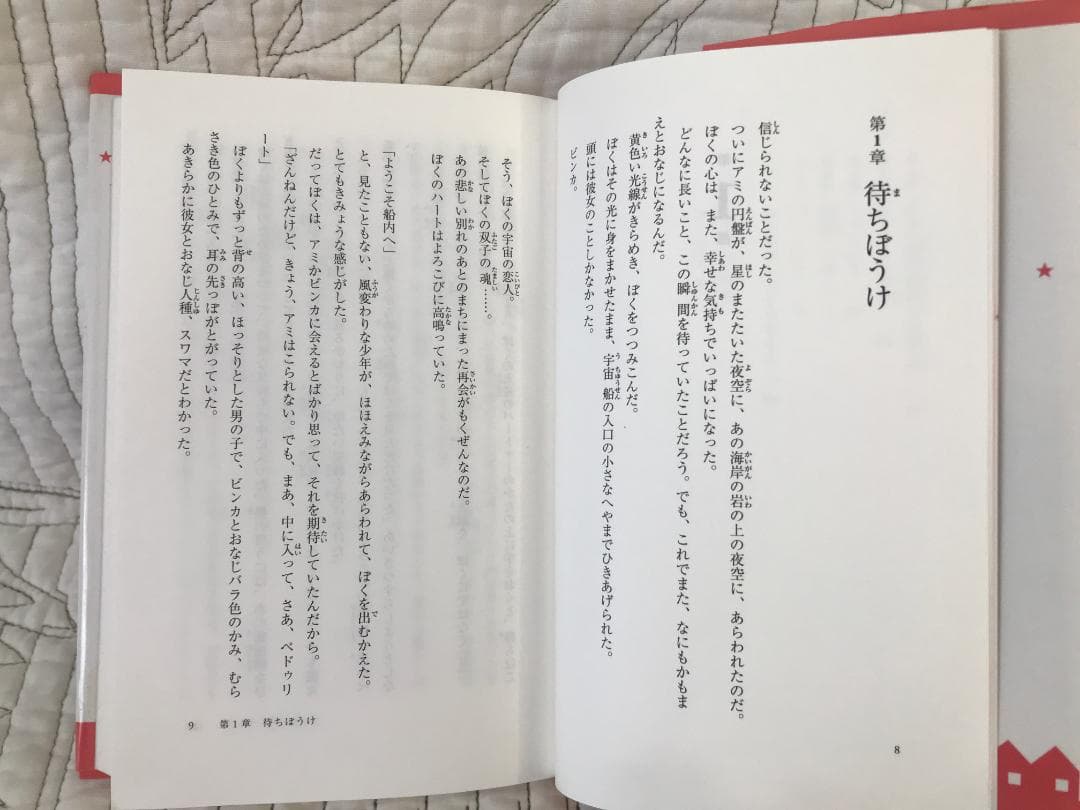 第1章 待ちぼうけ
信じられないことだった。
ついにアミの円盤が、星のまたたいた夜空に、あの海岸の岩の上の夜空に、あらわれたのだ。
ぼくの心は、また、幸せな気持ちでいっぱいになった。
どんなに長いこと、この瞬間を待っていたことだろう。でも、これでまた、なにもかもま
えとおなじになるんだ。
黄色い光線がきらめき、ぼくをつつみこんだ。
ぼくはその光に身をまかせたまま、宇宙船の入口の小さなへやまでひきあげられた。
頭には彼女のことしかなかった。
ビンカ。
8
そう、ぼくの宇宙の恋人。
そしてぼくの双子の魂……。
あの悲しい別れのあとのまちにまった再会がもくぜんなのだ。
ぼくのハートはよろこびに高鳴っていた。
「ようこそ船内へ」
と、見たこともない、風変わりな少年が、ほほえみながらあらわれて、ぼくを出むかえた。
とてもきみょうな感じがした。
だってぼくは、アミかビンカに会えるとばかり思って、それを期待していたんだから。
「ざんねんだけど、きょう、アミはこられない。でも、まあ、中に入って、さあ、ペドゥリ
ート」
ぼくよりもずっと背の高い、ほっそりとした男の子で、ビンカとおなじバラ色のかみ、むら
さき色のひとみで、耳の先っぽがとがっていた。
あきらかに彼女とおなじ人種、スワマだとわかった。
9 第1章 待ちぼうけ